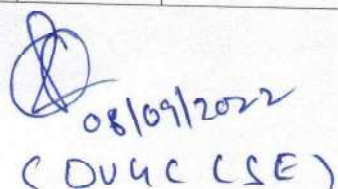 08/09/2022
(DUGC CSE)